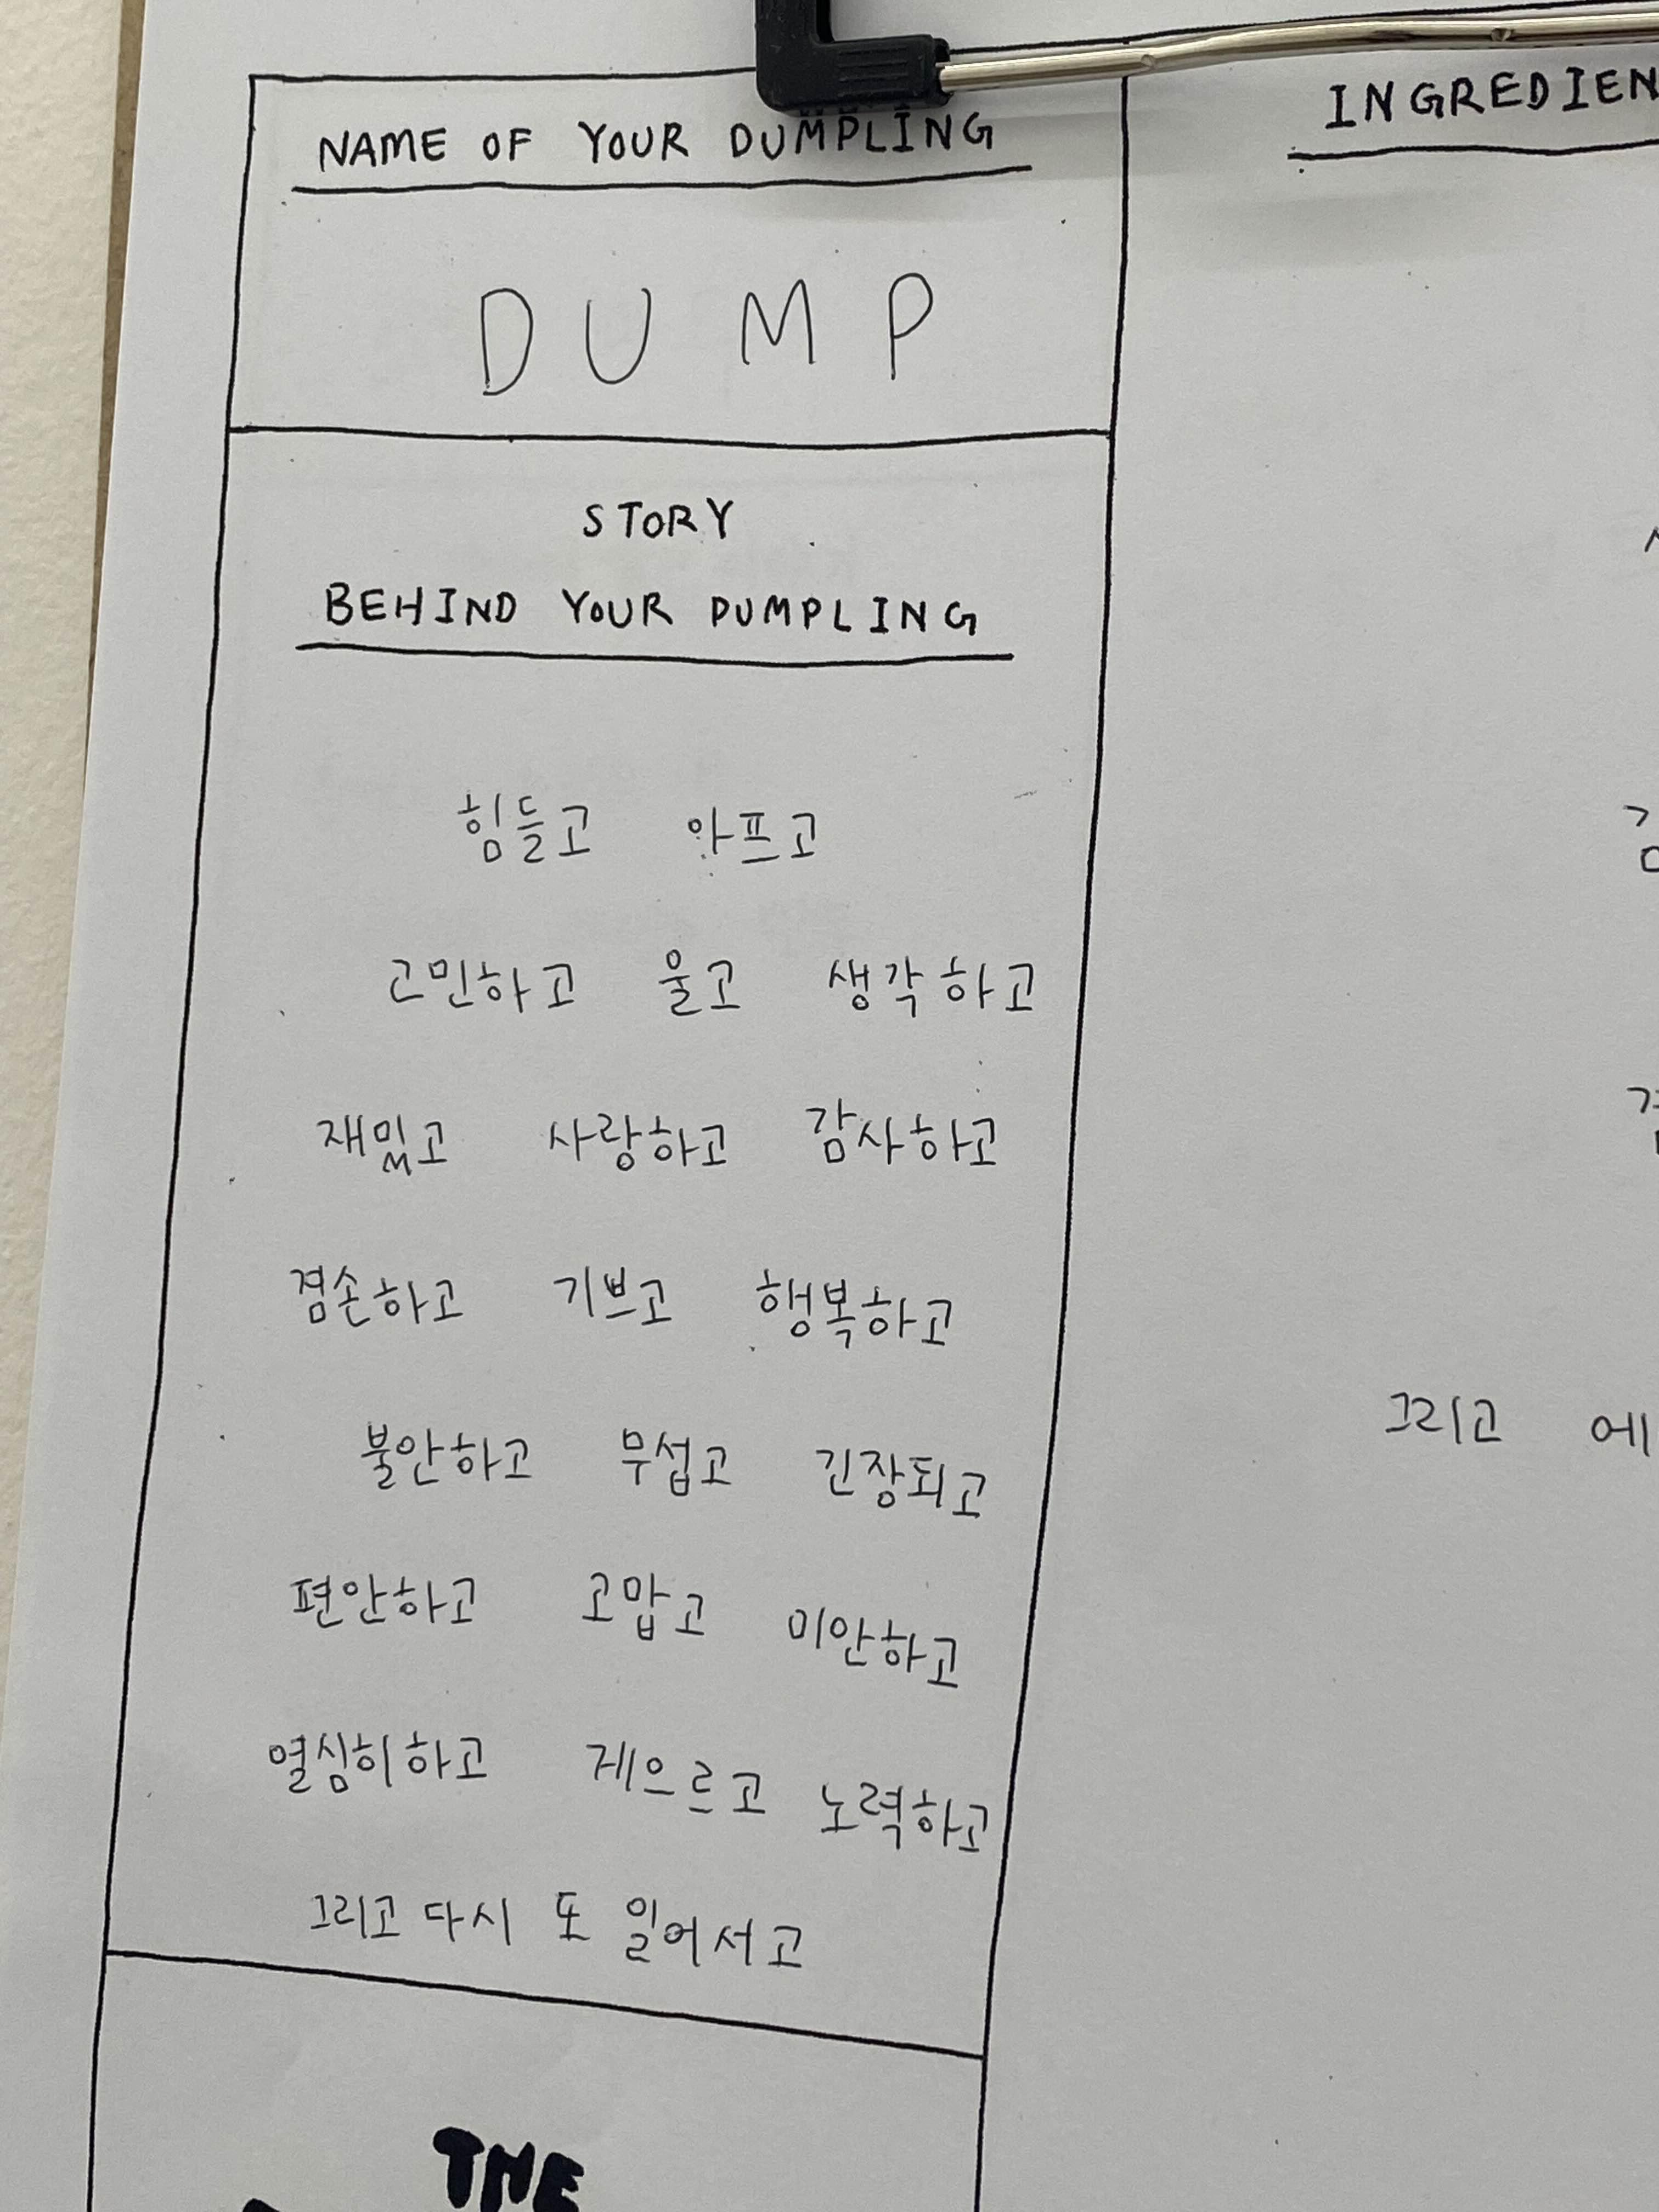 NAME OF YOUR DUMPLING
DUMP
STORY
BEHIND YOUR DUMPLING
힘들고 아프고
고민하고 울고 생각하고
재밌고 사랑하고 감사하고
겸손하고 기쁘고 행복하고
불안하고 무섭고 긴장되고
편안하고 고맙고 미안하고
열심히하고 게으르고 노력하고
그리고 다시 또 일어서고
THE
그리고